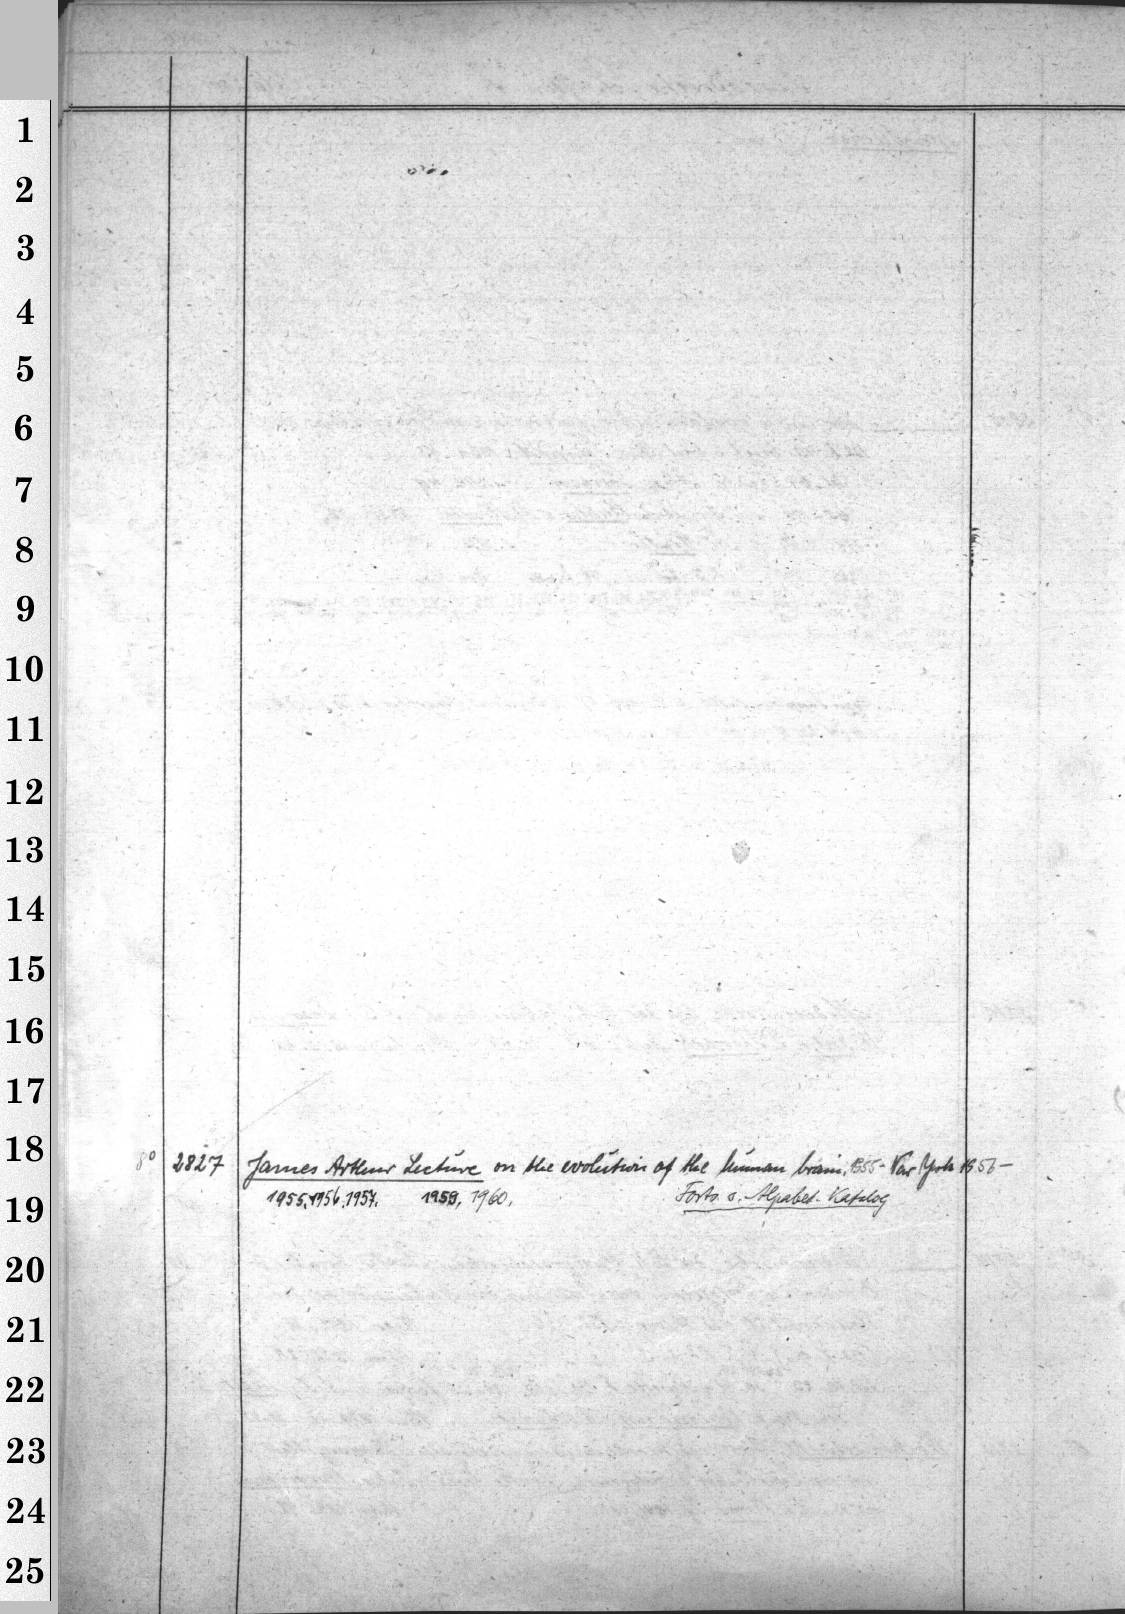 1
2
3
4
5
6
7
8
9
10
11
12
13
14
15
16
17
18
8° 2827 James Arthur Lecture on the evolution of the human brain. 1955- New York 1956—
19
1955, 1956, 1957. 1959, 1960, Forts. s. Alpabet. Katalog
20
21
22
23
24
25